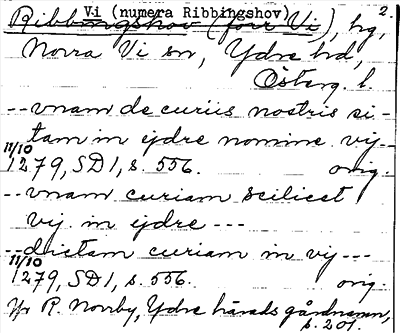 Vi (numera Ribbingshov) 2.
Ribbingshov (förr Vi), hg,
Norra Vi sn, Ydre hd,
Österg. l.
-- vnam de curiis nostris si-
tam in ydre nomine vij --
11/10
1279, SD1, s. 556. orig.
-- vnam curiam scilicet
vij in ydre ---
-- dictam curiam in vij ---
11/10
1279, SD1, s. 556. orig.
Jfr R. Norrby, Ydre härads gårdnamn,
s. 201.